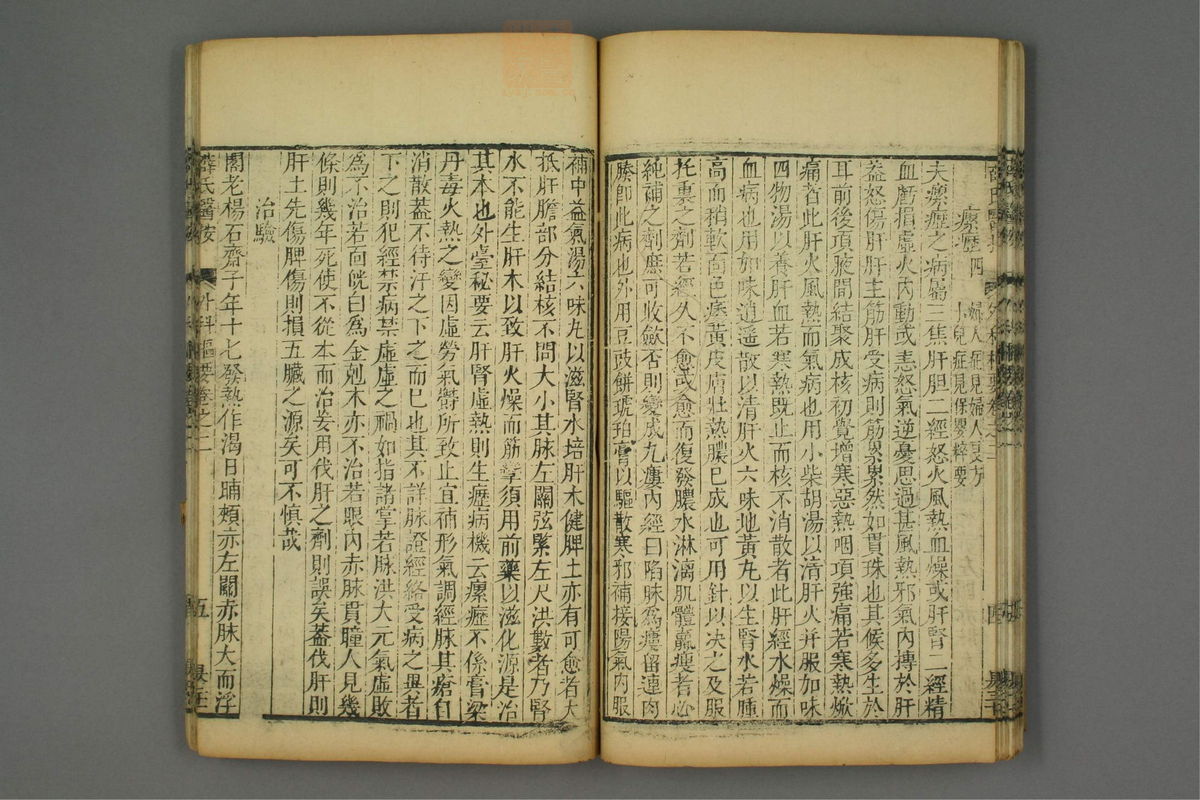 瘰癧四
婦人症見婦人良方
小兒症見保嬰粹要
夫瘰癧之病屬三焦肝胆二經怒火風熱血燥或肝腎二經精
血虧損虛火內動或恚怒氣逆憂思過甚風熱邪氣內摶於肝
益怒傷肝肝主筋肝受病則筋累累然如貫珠也其候多生於
耳前後項腋間結聚成核初覺增寒惡熱咽項強痛若寒熱焮
痛者此肝火風熱而氣病也用小柴胡湯以清肝火并服加味
四物湯以養肝血若寒熱既止而核不消散者此肝經水燥而
血病也用加味逍遥散以清肝火六味地黃丸以生腎水若腫
高而稍軟面色痿黃皮膚壯熱膿已成也可用針以决之及服
托裏之劑若經久不愈或愈而復發膿水淋漓肌體羸瘦者必
純補之劑庶可收斂否則變成九瘻內經曰陷脉為瘻留連肉
腠即此病也外用豆豉餅琥珀膏以驅散寒邪補接陽氣內服
補中益氣湯六味丸以滋腎水培肝木健脾土亦有可愈者大
抵肝膽部分結核不問大小其脉左關弦緊左尺洪數者乃腎
水不能生肝木以致肝火燥而筋攣須用前藥以滋化源是治
其本也外臺秘要云肝腎虛熱則生癧病機云瘰癧不係膏梁
丹毒火熱之變因虛勞氣鬱所致止宜補形氣調經脉其瘡自
消散蓋不待汗之下之而已也其不詳脉證經絡受病之異者
下之則犯經禁病禁虛虛之禍如指諸掌若脉洪大元氣虛敗
為不治若面㿠白為金剋木亦不治若眼內赤脉貫瞳人見幾
條則幾年死使不從本而治妄用伐肝之劑則誤矣蓋伐肝則
肝土先傷脾傷則損五臟之源矣可不慎哉
治驗
閣老楊石齋子年十七發熱作渴日晡頰赤左關赤脉大而浮
薛氏醫按
外科樞要卷之二
五